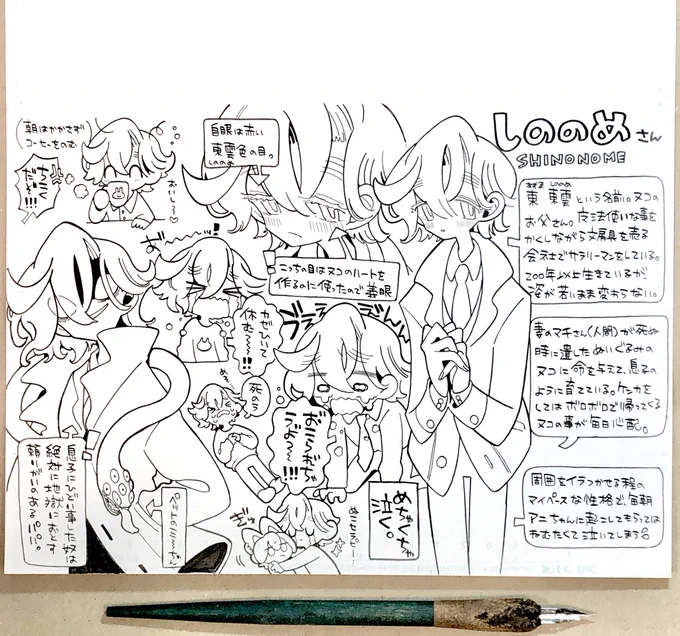 しののめさん
SHINONOME
東 東雲という名前。ヌコの
お父さん。魔法使いな事を
かくしながら文房具を売る
会社でサラリーマンをしている。
200年以上生きているが
姿が若いまま変わらない。
妻のマチさん(人間)が死ぬ
時に遺したぬいぐるみの
ヌコに命を与えて、息子の
ように育てている。ケンカを
してはボロボロで帰ってくる
ヌコの事が毎日心配。
周囲をイラつかせる程の
マイペースな性格で、毎朝
アニちゃんに起こしてもらっては
ねむたくて泣いてしまう
自眼は赤い
東雲色の目。
しののめ
こっちの目はヌコのハートを
作るのに使ったので義眼
朝はかかさず
コーヒーをのむ
ちこく
だぞ!!!
おいし〜♡
カゼひいて
休む〜〜!!
死のう
めちゃくちゃ
泣く。
息子にひどい事した奴は
絶対に地獄におとす
頼りがいのあるパパ。